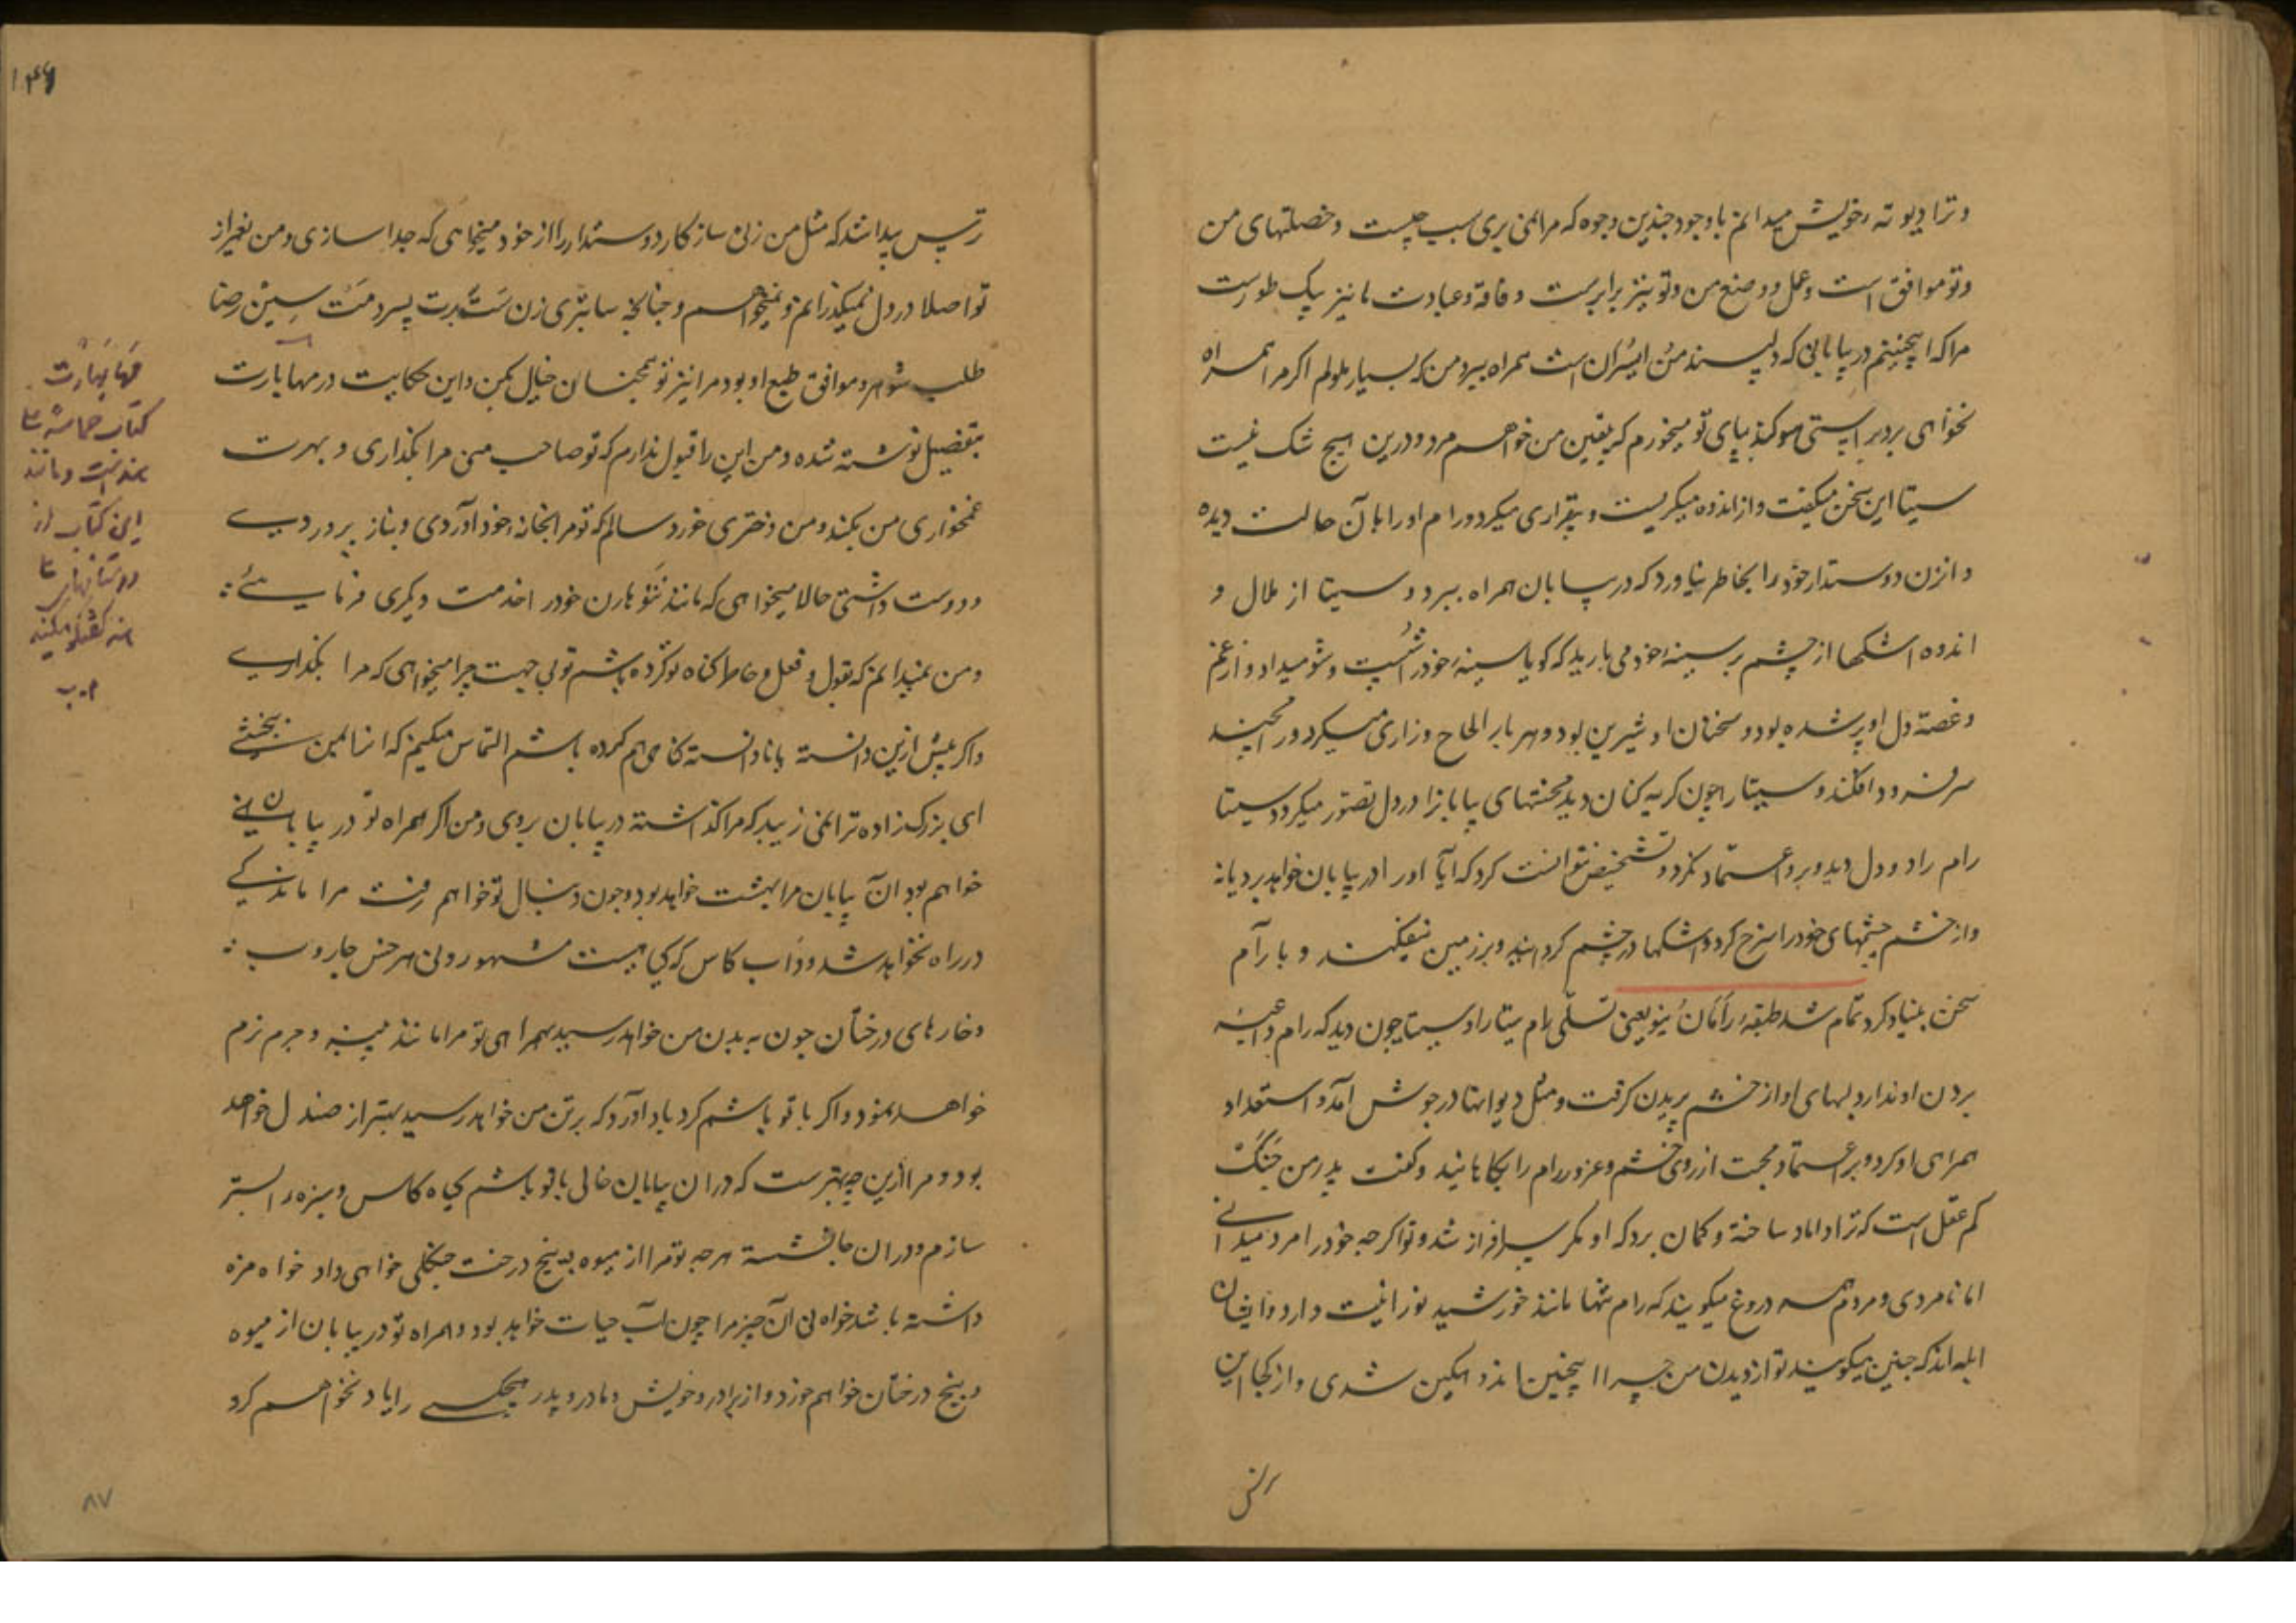 و ترا دیوته خویش میدانم باوجود چندین وجوه که مرا نمی بری سبب چیست و خصلتهای من
و تو موافق است و عمل و وضع من و تو نیز برابرست و فاقه و عبادت ما نیز یک طورست
مرا که اینچنینم در بیابانی که دلپسند همراه ببر و من که بسیار ملولم اگر مرا همراه
نخواهی برد براستی سوکند بپای تو میخورم که یقین من خواهم مرد و درین هیچ شک نیست
سیتا این سخن میگفت و از اندوه میگریست و بیقراری میکرد و رام او را با آن حالت دیده
و انزن دوستدار خود را بخاطر نیاورد که در بیابان همراه ببرد و سیتا از ملال و
اندوه اشکها از چشم بر سینهٔ خود می بارید که گویا سینهٔ خود را شست و شو میداد و از غم
و غصه دل او پر شده بود و سخنان او شیرین بود و هر بار الحاح و زاری میکرد و رامچند
سر فرود افکند و سیتا را چون گریه کنان دید محنتهای بیابانرا در دل تصور میکرد و سیتا
رام را دو دل دید و برو اعتماد نکرد و تشخیص نتوانست کرد که آیا او را در بیابان خواهد برد یا نه
و از خشم چشمهای خود را سرخ کرد و اشکها در چشم گردانید و بر زمین نیفکند و با رام
سخن بنیاد کرد تمام شد طبقهٔ یعنی تسلّی رام سیتا را و سیتا چون دید که رام داعیهٔ
بردن او ندارد لبهای او از خشم پریدن گرفت و مثل دیوانها در جوش آمد و استعداد
همراهی او کرد و بر اعتماد محبت از روی خشم و غرور رام را گفت پدر من جَنَک
کم عقل است که ترا داماد ساخته و گمان برد که او مکر سرافراز شد و تو اگرچه خود را مرد میدانی
اما نامردی و مردم همه دروغ میگویند که رام تنها مانند خورشید نورانیت دارد و ایشان
ابله اند که چنین میگویند تو از دیدن من چرا اینچنین اندوهگین شدی و از کجا این
ترس
۱۴۶
ترس پیدا شد که مثل من زنی سازکار دوستدار را از خود میخواهی که جدا سازی و من بغیر از
تو اصلا در دل نمیگذرانم و نمیخواهم و چنانچه سابتری زن ستّ برت پسر دمت سین رضا
طلب شوهر و موافق طبع او بود مرا نیز تو همچنان خیال بکن و این حکایت در مهابارت
بتفصیل نوشته شده و من این را قبول ندارم که تو صاحب منی مرا بگذاری و بهرت
غمخواری من بکند و من دختری خورد سالم که تو مرا بخانهٔ خود آوردی و بناز پروردی
و دوست داشتی حالا میخواهی که مانند خود را خدمت دیگری فرمایی
و من نمیدانم که بقول و فعل و خاطر گناه تو کرده باشم تو بی جهت چرا میخواهی که مرا بگذاری
و اگر پیش ازین دانسته یا نادانسته گناهی هم کرده باشم التماس میکنم که آنرا بمن ببخشی
ای بزرگ زاده ترا نمی زیبد که مرا گذاشته در بیابان بروی و من اگر همراه تو در بیابانی
خواهم بود آن بیابان مرا بهشت خواهد بود و چون دنبال تو خواهم رفت مرا ماندگی
در راه نخواهد شد و داب کاس که گیاهیست مشهور و نی و هر جنس جاروب
و خارهای درختان چون به بدن من خواهد رسید بهمراهی تو مرا مانند پنبه و چرم نرم
خواهد نمود و اگر با تو باشم گرد باد آورد که بر تن من خواهد رسید بهتر از صندل خواهد
بود و مرا ازین چه بهترست که در آن بیابان خالی با تو باشم گیاه کاس و سبزه را بستر
سازم و در آن جا نشسته هرچه تو مرا از میوه و بیخ درخت جنگلی خواهی داد خواه مزه
داشته باشد خواه نی آن چیز مرا چون آب حیات خواهد بود و همراه تو در بیابان از میوه
و بیخ درختان خواهم خورد و از برادر و خویش و مادر و پدر هیچکسی را یاد نخواهم کرد
مَهابَهارَت
کتاب حماسهٔ
هندست و مانند
این کتاب از
داستانهای
گفتگو میکند
م.ب
۸۷